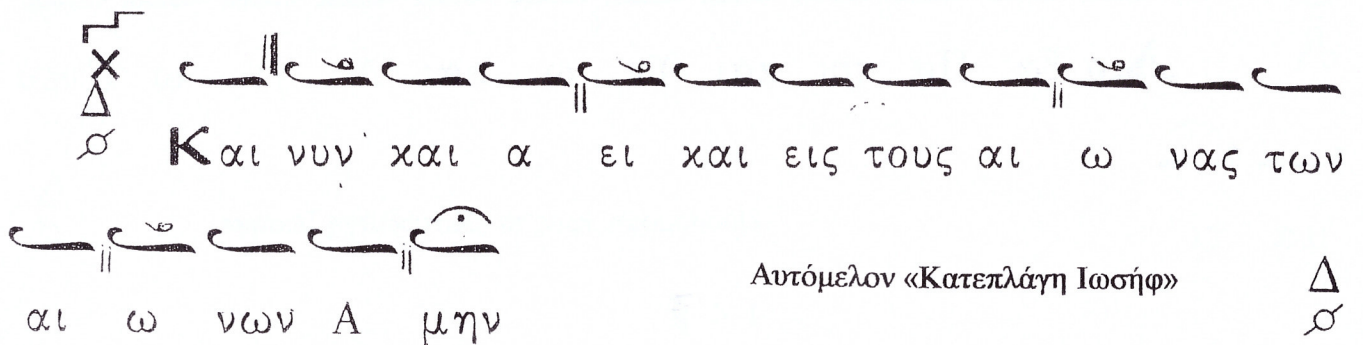 Και νυν και α ει και εις τους αι ω νας των
αι ω νων Α μην
Αυτόμελον «Κατεπλάγη Ιωσήφ» Δ